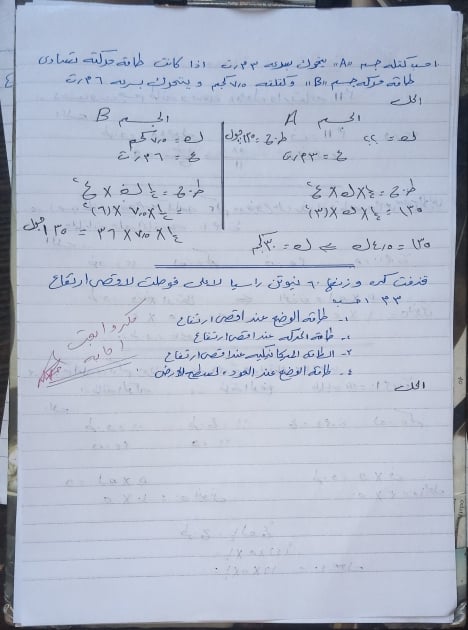 احسب كتلة جسم "A" يتحرك بسرعة ٣ م/ث اذا كانت طاقة حركته تساوى
طاقة حركة جسم "B" وكتلته ٧٫٥ كجم ويتحرك بسرعة ٦ م/ث
الحل
الجسم A
ك = ؟؟
ط.ح = ١٣٥ جول
ع = ٣ م/ث
ط.ح = ½ × ك × ع²
١٣٥ = ½ × ك × (٣)²
الجسم B
ك = ٧٫٥ كجم
ع = ٦ م/ث
ط.ح = ½ ك × ع²
½ × ٧٫٥ × (٦)²
½ × ٧٫٥ × ٣٦ = ١٣٥ جول
١٣٥ = ٤٫٥ ك ⇒ ك = ٣٠ كجم
قذفت كرة وزنها ٦٠ نيوتن رأسيا لاعلى فوصلت لاقصى ارتفاع
٣ م احسب
١- طاقة الوضع عند اقصى ارتفاع
٢- طاقة الحركة عند اقصى ارتفاع
٣- الطاقة الميكانيكية عند اقصى ارتفاع
٤- طاقة الوضع عند العودة لسطح الارض
فكر وابعت
اجابته
الحل